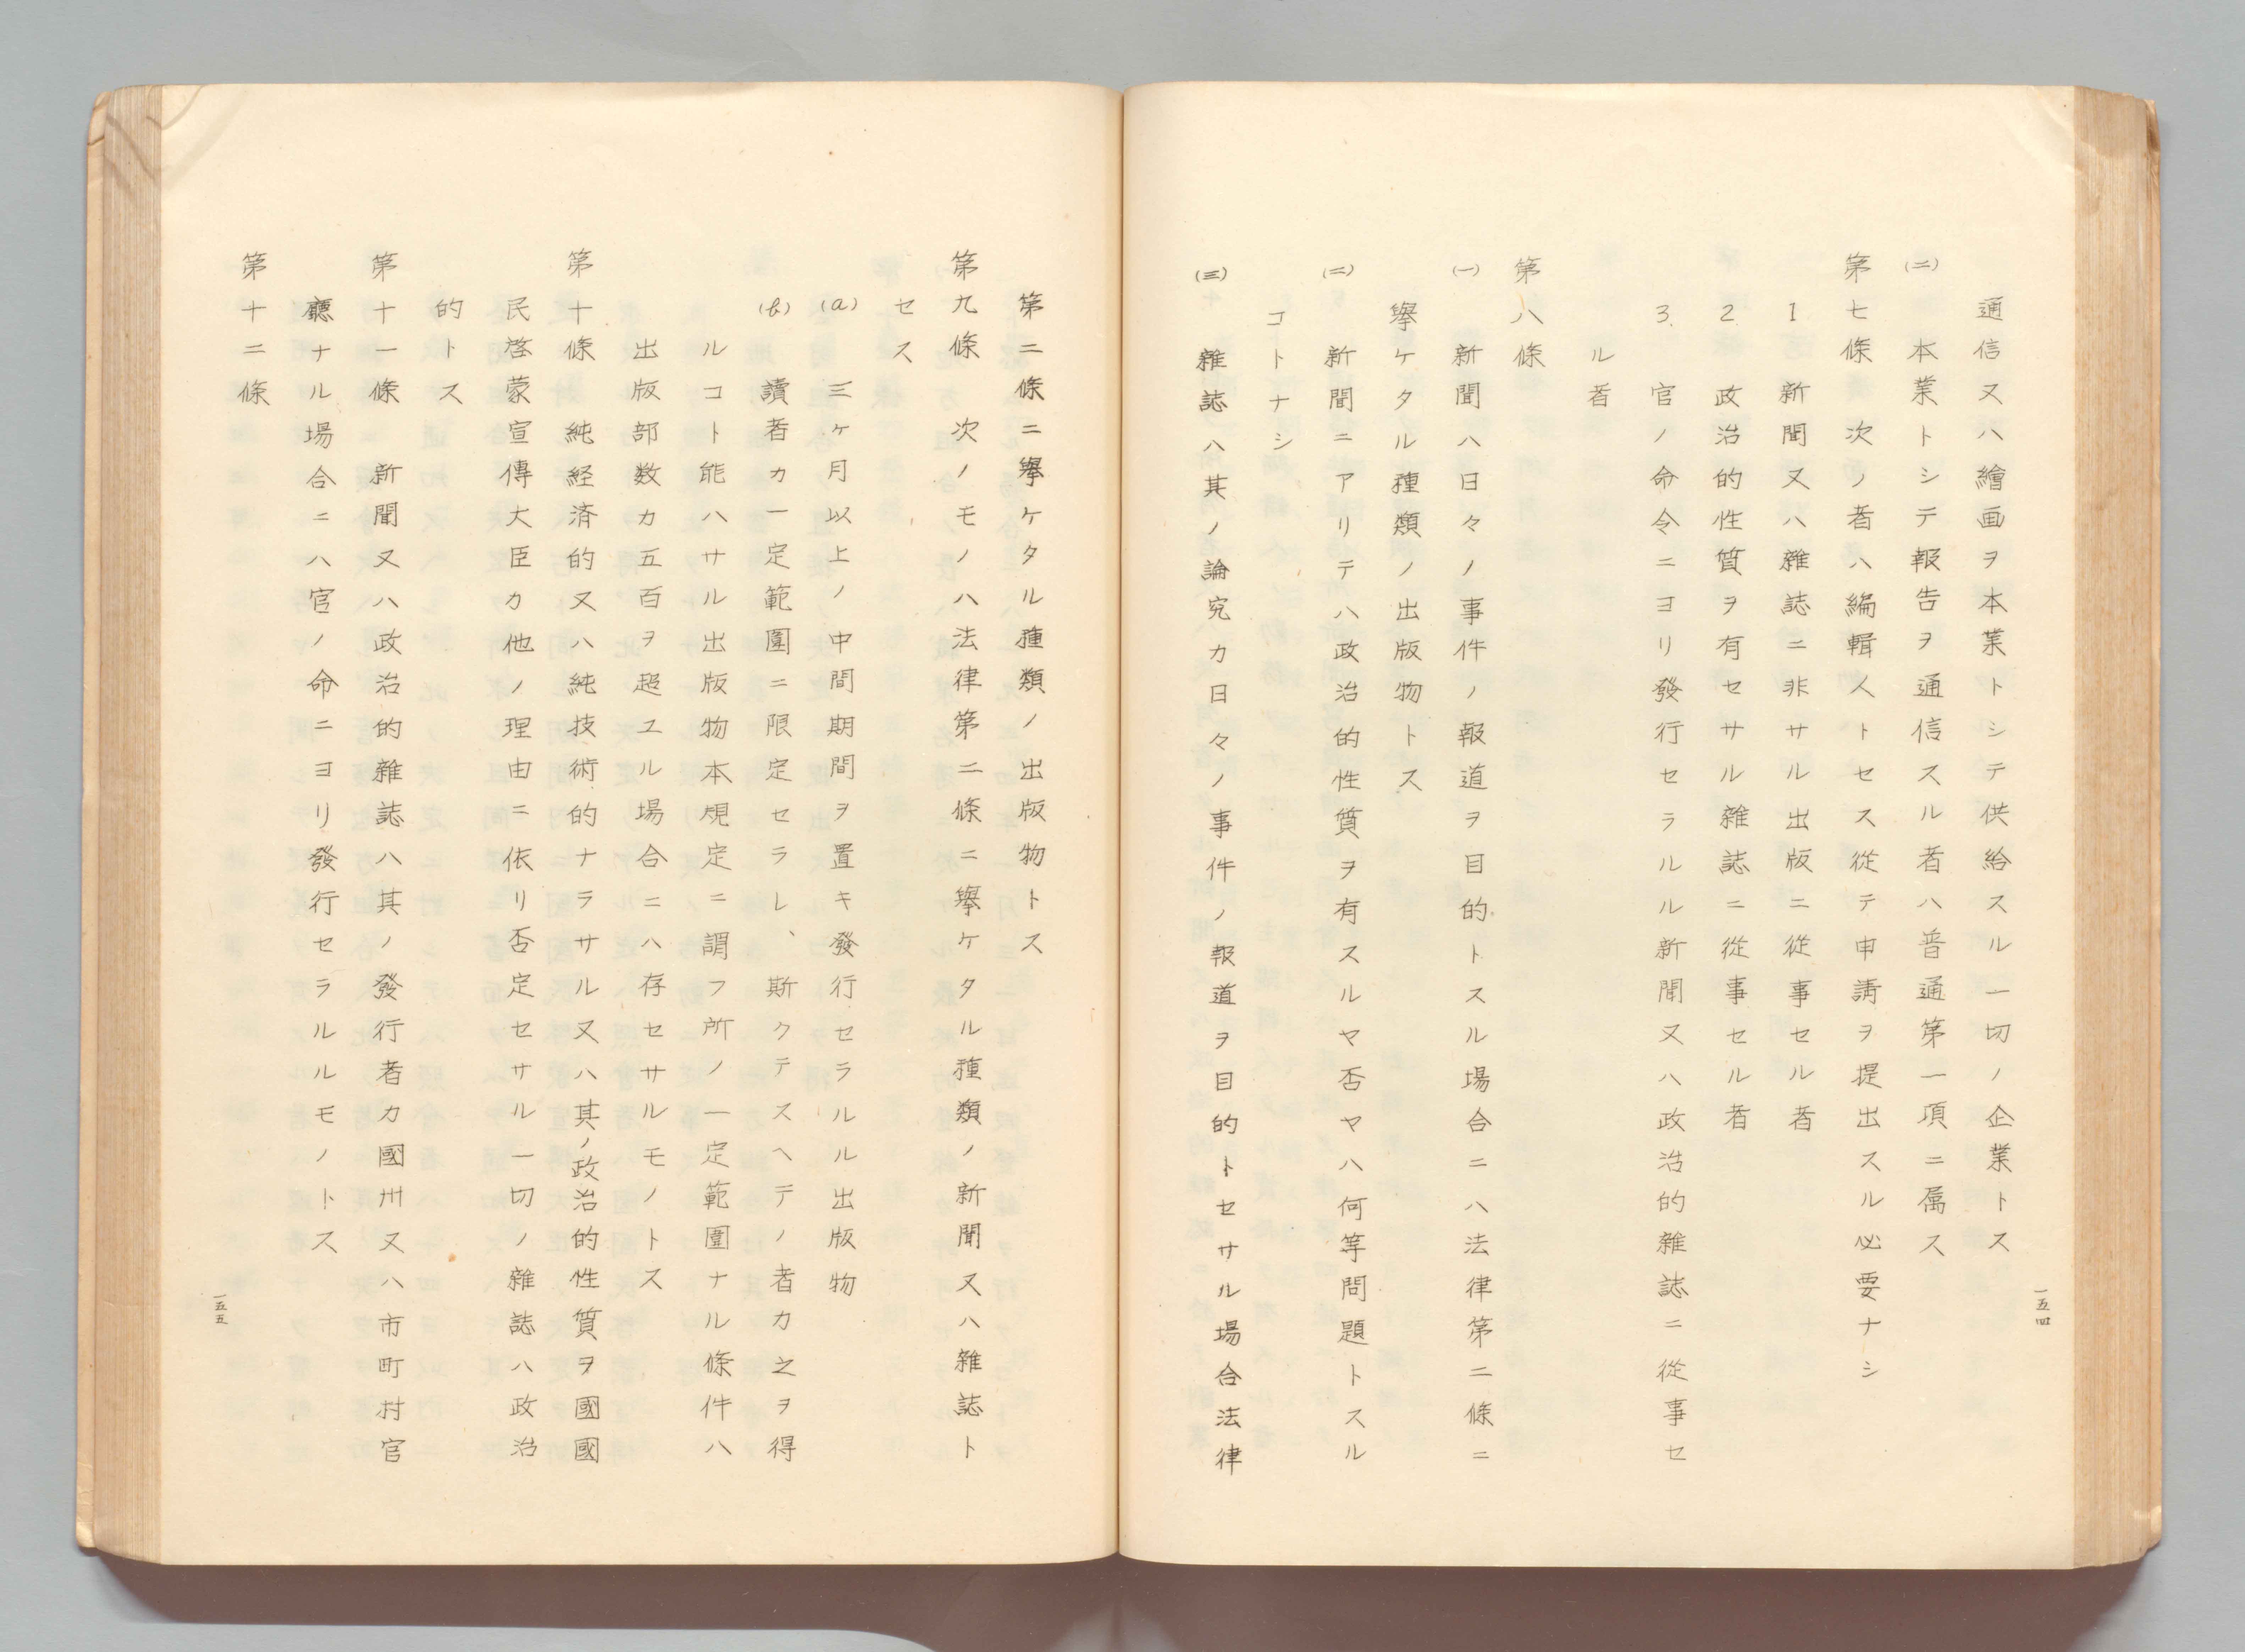 通信又ハ繪画ヲ本業トシテ供給スル一切ノ企業トス
(二) 本業トシテ報告ヲ通信スル者ハ普通第一項ニ属ス
第七條 次ノ者ハ編輯人トセス從テ申請ヲ提出スル必要ナシ
1 新聞又ハ雜誌ニ非サル出版ニ從事セル者
2 政治的性質ヲ有セサル雜誌ニ從事セル者
3. 官ノ命令ニヨリ發行セラルル新聞又ハ政治的雜誌ニ從事セ
ル者
第八條
(一) 新聞ハ日々ノ事件ノ報道ヲ目的トスル場合ニハ法律第二條ニ
擧ケタル種類ノ出版物トス
(二) 新聞ニアリテハ政治的性質ヲ有スルヤ否ヤハ何等問題トスル
コトナシ
(三) 雜誌ハ其ノ論究カ日々ノ事件ノ報道ヲ目的トセサル場合法律
一五四
第二條ニ擧ケタル種類ノ出版物トス
第九條 次ノモノハ法律第二條ニ擧ケタル種類ノ新聞又ハ雜誌ト
セス
(a) 三ヶ月以上ノ中間期間ヲ置キ發行セラルル出版物
(b) 讀者カ一定範圍ニ限定セラレ、斯クテスヘテノ者カ之ヲ得
ルコト能ハサル出版物本規定ニ謂フ所ノ一定範圍ナル條件ハ
出版部数カ五百ヲ超ユル場合ニハ存セサルモノトス
第十條 純経済的又ハ純技術的ナラサル又ハ其ノ政治的性質ヲ國國
民啓蒙宣傳大臣カ他ノ理由ニ依リ否定セサル一切ノ雜誌ハ政治
的トス
第十一條 新聞又ハ政治的雜誌ハ其ノ發行者カ國州又ハ市町村官
廳ナル場合ニハ官ノ命ニヨリ發行セラルルモノトス
第十二條
一五五